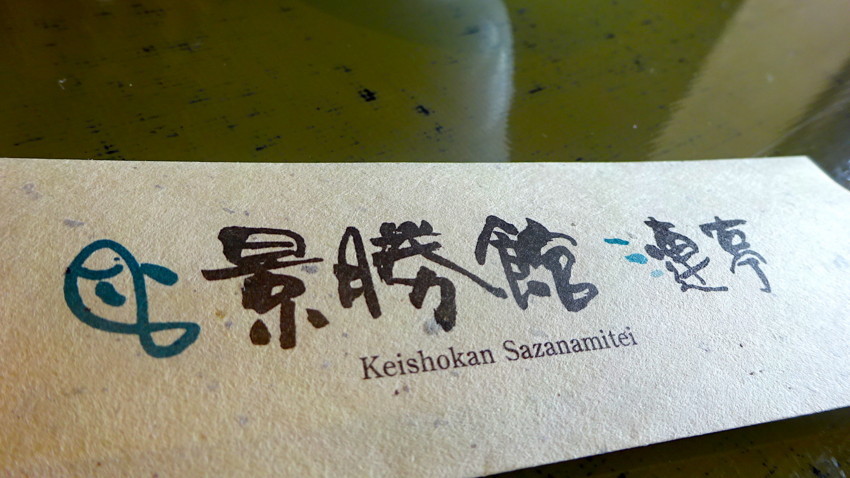 景勝館 漣亭
Keishokan Sazanamitei